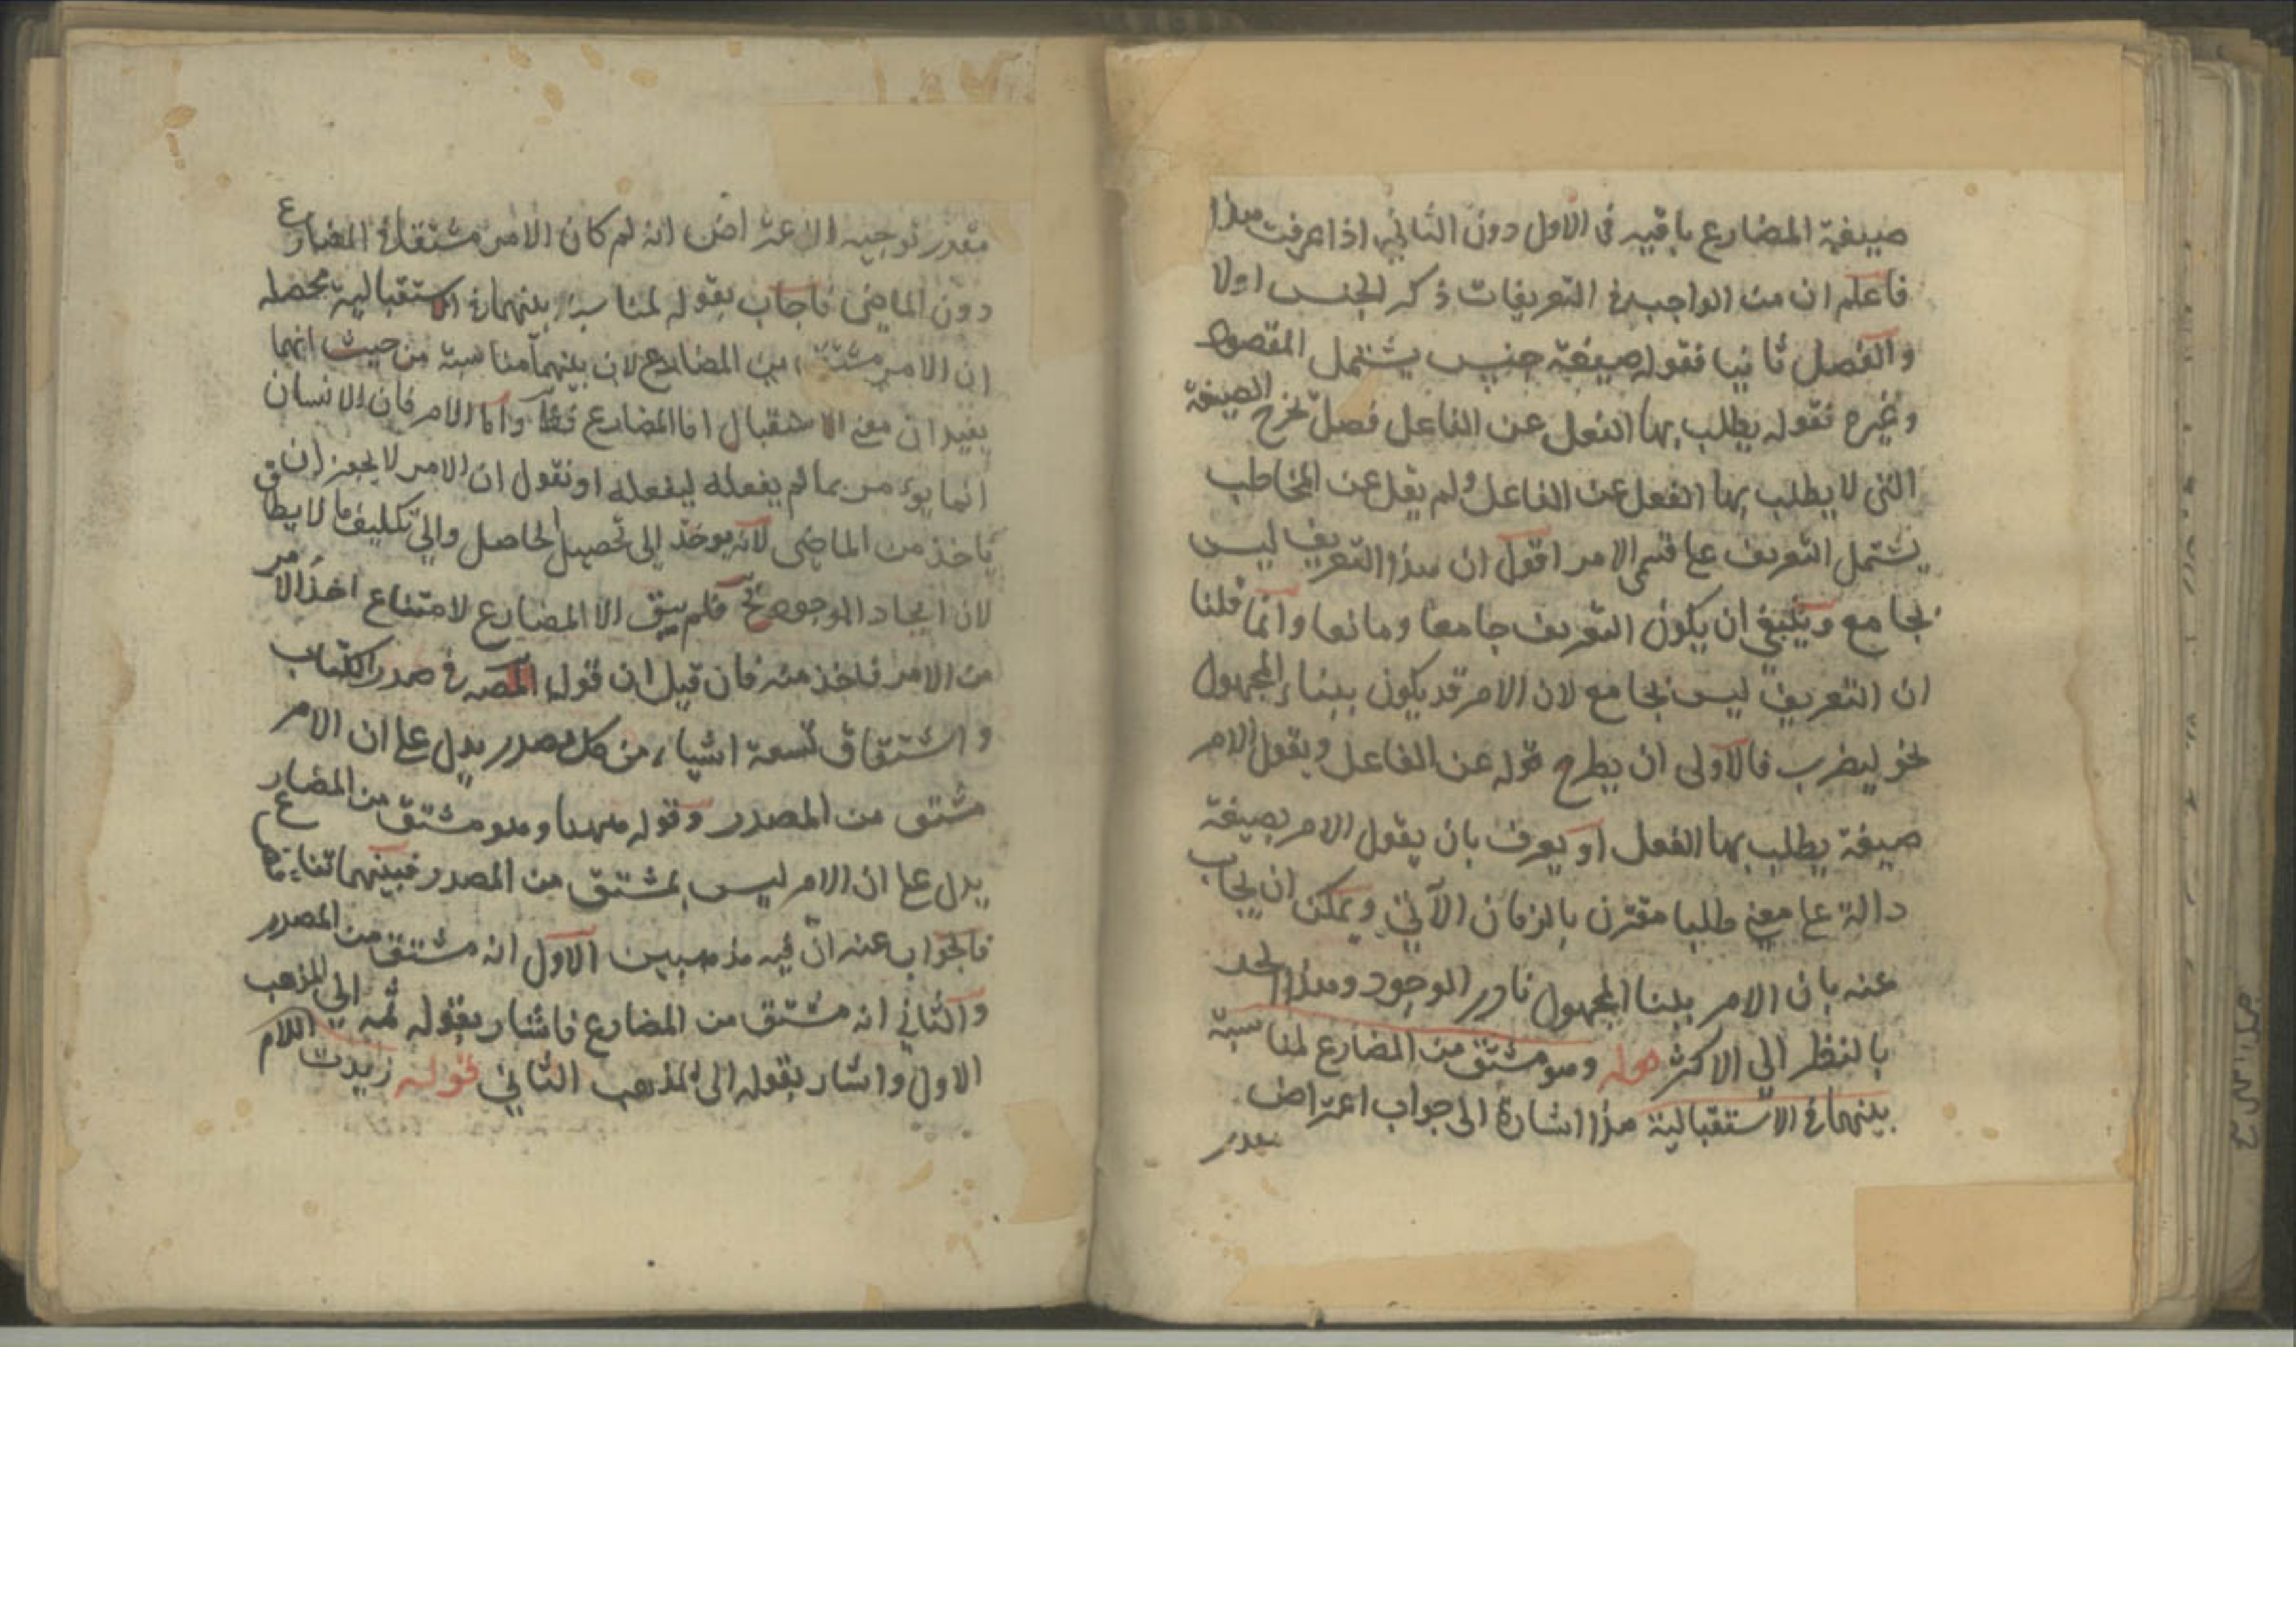 صيغة المضارع باقيه فى الاول دون الثاني اذا عرفت هذا
فاعلم ان من الواجب فى التعريفات ذكر الجنس اولا
والفصل ثانيا فقوله صيغة جنس يشتمل المقصود
وغيره فقوله يطلب بها الفعل عن الفاعل فصل يخرج الصيغة
التى لا يطلب بها الفعل عن الفاعل ولم يقل عن المخاطب
يشتمل التعريف على قسمى الامر اقول ان هذا التعريف ليس
بجامع وينبغى ان يكون التعريف جامعا ومانعا وانما قلنا
ان التعريف ليس بجامع لان الامر قد يكون ببناء المجهول
نحو ليضرب فالاولى ان يطرح قوله عن الفاعل ويقول الامر
صيغة يطلب بها الفعل او يعرف بان يقول الامر بصيغة
دالة على معنى طلبا مقترن بالزمان الآتي ويمكن ان يجاب
عنه بان الامر ببنا المجهول نادر الوجود وهذا الحد
بالنظر الي الاكثر قوله وهو مشتق من المضارع لمناسبة
بينهما فى الاستقبالية هذا اشارة الى جواب اعتراض
مقدر
مقدر توجيه الاعتراض انه لم كان الامر مشتقا من المضارع
دون الماضى فاجاب بقوله لمناسبة بينهما فى الاستقبالية محصله
ان الامر مشتق من المضارع لان بينهما مناسبة من حيث انهما
يفيدان معنى الاستقبال اما المضارع فظ واما الامر فان الانسان
انما يؤمر بما لم يفعله ليفعله او نقول ان الامر لا يجوز ان
ياخذ من الماضى لانه يوخذ الى تحصيل الحاصل والي تكليف ما لا يطاق
لان ايجاد الموجود مح فلم يبق الا المضارع لامتناع اخذ الامر
من الامر فاخذ منه فان قيل ان قوله المصـ فى صدر الكتاب
واشتقاق تسعة اشياء من كل مصدر يدل على ان الامر
مشتق من المصدر وقوله ههنا وهو مشتق من المضارع
يدل على ان الامر ليس بمشتق من المصدر فبينهما تناقض
فالجواب عنه ان فيه مذهبين الاول انه مشتق من المصدر
والثاني انه مشتق من المضارع فاشار بقوله ثمه الى المذهب
الاول واشار بقوله الى المذهب الثاني قوله زيدت اللام